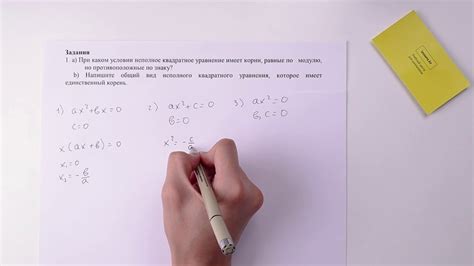 Задания
1. а) При каком условии неполное квадратное уравнение имеет корни, равные по модулю,
но противоположные по знаку?
b) Напишите общий вид неполного квадратного уравнения, которое имеет
единственный корень.
1) ax²+bx=0 2) ax²+c=0 3) ax²=0
c=0 b=0 b,c=0
x(ax+b)=0 x²=-c/a
x₁=0
x₂=-b/a